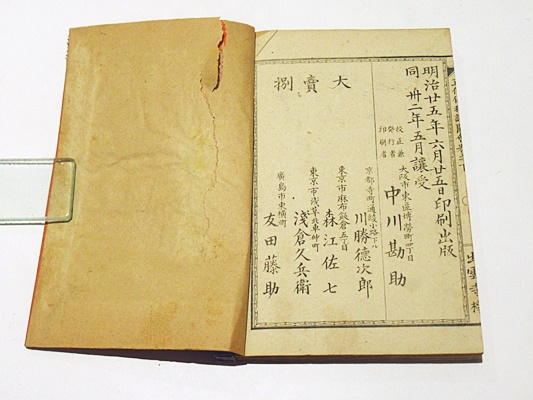 明治廿五年六月廿五日印刷出版
同 卅二年五月讓受
校正兼
發行者
印刷者
大阪市東區博勞町四丁目
中川勘助
大賣捌
京都寺町通綾小路下ル
川勝德次郎
東京市麻布飯倉五丁目
森江佐七
東京市淺草北東仲町
淺倉久兵衛
廣島市東橫町
友田藤助